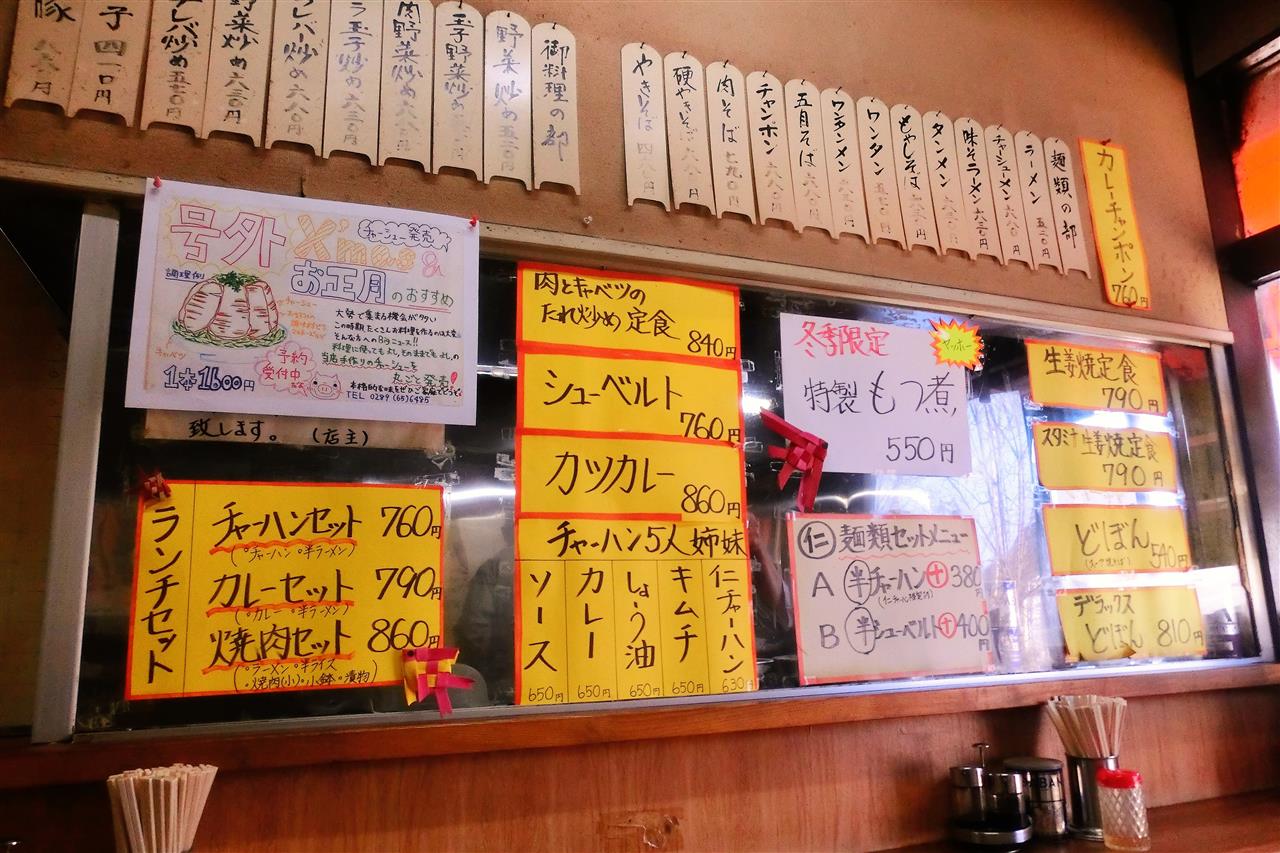 麺類の部
ラーメン 五二〇円
チャーシューメン
味そラーメン 六三〇円
タンメン
もやしそば
ワンタン
ワンタンメン
五目そば
チャンポン
肉そば 七九〇円
硬やきそば
やきそば
カレーチャンポン
760円
御料理の部
野菜炒め 五三〇円
玉子野菜炒め
肉野菜炒め
ニラ玉子炒め 六三〇円
レバー炒め 六八〇円
野菜炒め 六三〇円
子 四一〇円
豚
号外 X'mas &
お正月のおすすめ
チャーシュー発売
調理例
チャーシュー
キャベツ
大勢で集まる機会がタタい
この時期、たくさんお料理を作るのは大変。
そんな方への
料理に使ってもよし、そのままでもよしの
当店手作りのチャーシューを
丸ごと発売!
予約
受付中
1本1600円
TEL 0289(65)6485
致します。(店主)
ランチセット
チャーハンセット 760円
(°チャーハン °半ラーメン)
カレーセット 790円
(°カレー °半ラーメン)
焼肉セット 860円
°ラーメン °半ライス
°焼肉(小)°小鉢 °漬物
肉とキャベツの
たれ炒め定食
840円
シューベルト
760円
カツカレー
860円
チャーハン5人姉妹
仁チャーハン 630円
キムチ 650円
しょう油 650円
カレー 650円
ソース 650円
冬季限定
ヤッホー
特製もつ煮
550円
仁 麺類セットメニュー
A 半チャーハン+380円
B 半シューベルト+400円
生姜焼定食
790円
スタミナ生姜焼定食
790円
どぼん
540円
デラックス
どぼん 810円